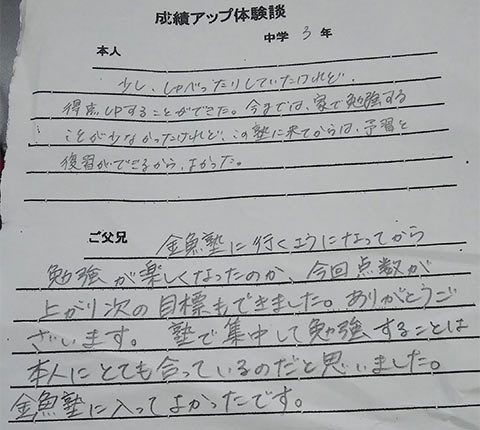 成績アップ体験談
中学 3 年
本人
少し、しゃべったりしていたけれど、
得点UPすることができた。今までは、家で勉強する
ことが少なかったけれど、この塾に来てからは、予習と
復習ができるから、よかった。
ご父兄
金魚塾に行くようになってから
勉強が楽しくなったのか、今回点数が
上がり次の目標もできました。ありがとうご
ざいます。 塾で集中して勉強することは
本人にとても合っているのだと思いました。
金魚塾に入ってよかったです。